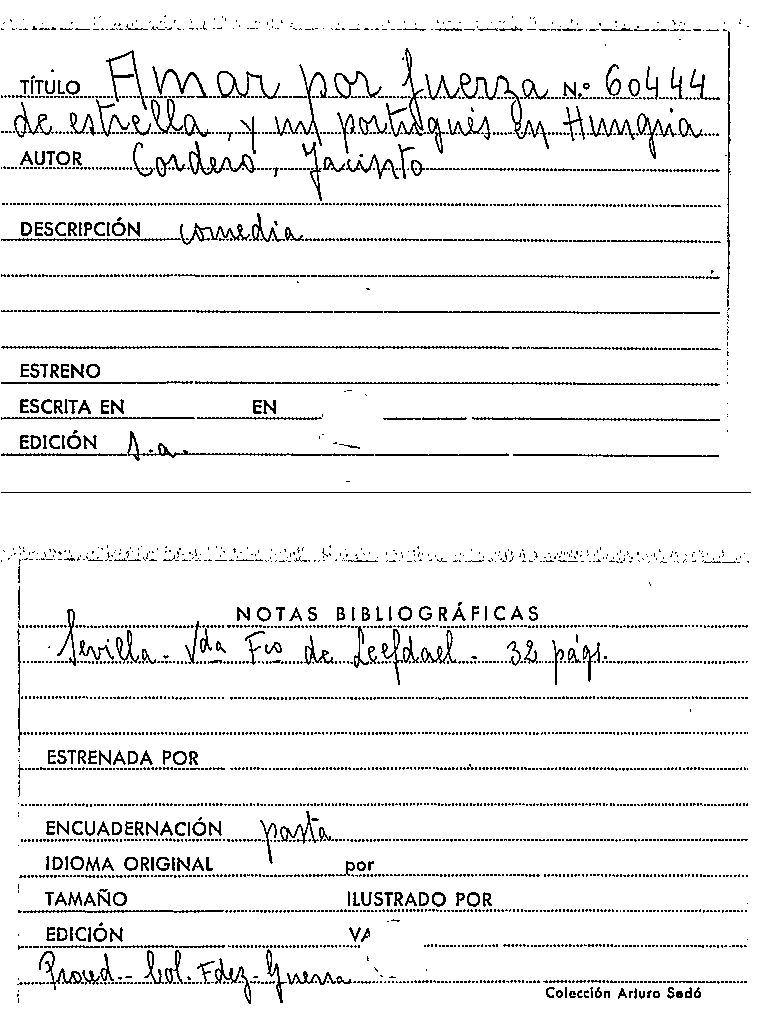 TÍTULO Amar por fuerza N.º 60444
de estrella, y un portugués en Hungria
AUTOR Cordero, Jacinto
DESCRIPCIÓN comedia
ESTRENO
ESCRITA EN EN
EDICIÓN s.a.
NOTAS BIBLIOGRÁFICAS
Sevilla - Vda Fco de Leefdael - 32 págs.
ESTRENADA POR
ENCUADERNACIÓN pasta
IDIOMA ORIGINAL por
TAMAÑO ILUSTRADO POR
EDICIÓN VA
Proced.- Col. Fdez-Guerra
Colección Arturo Sedó